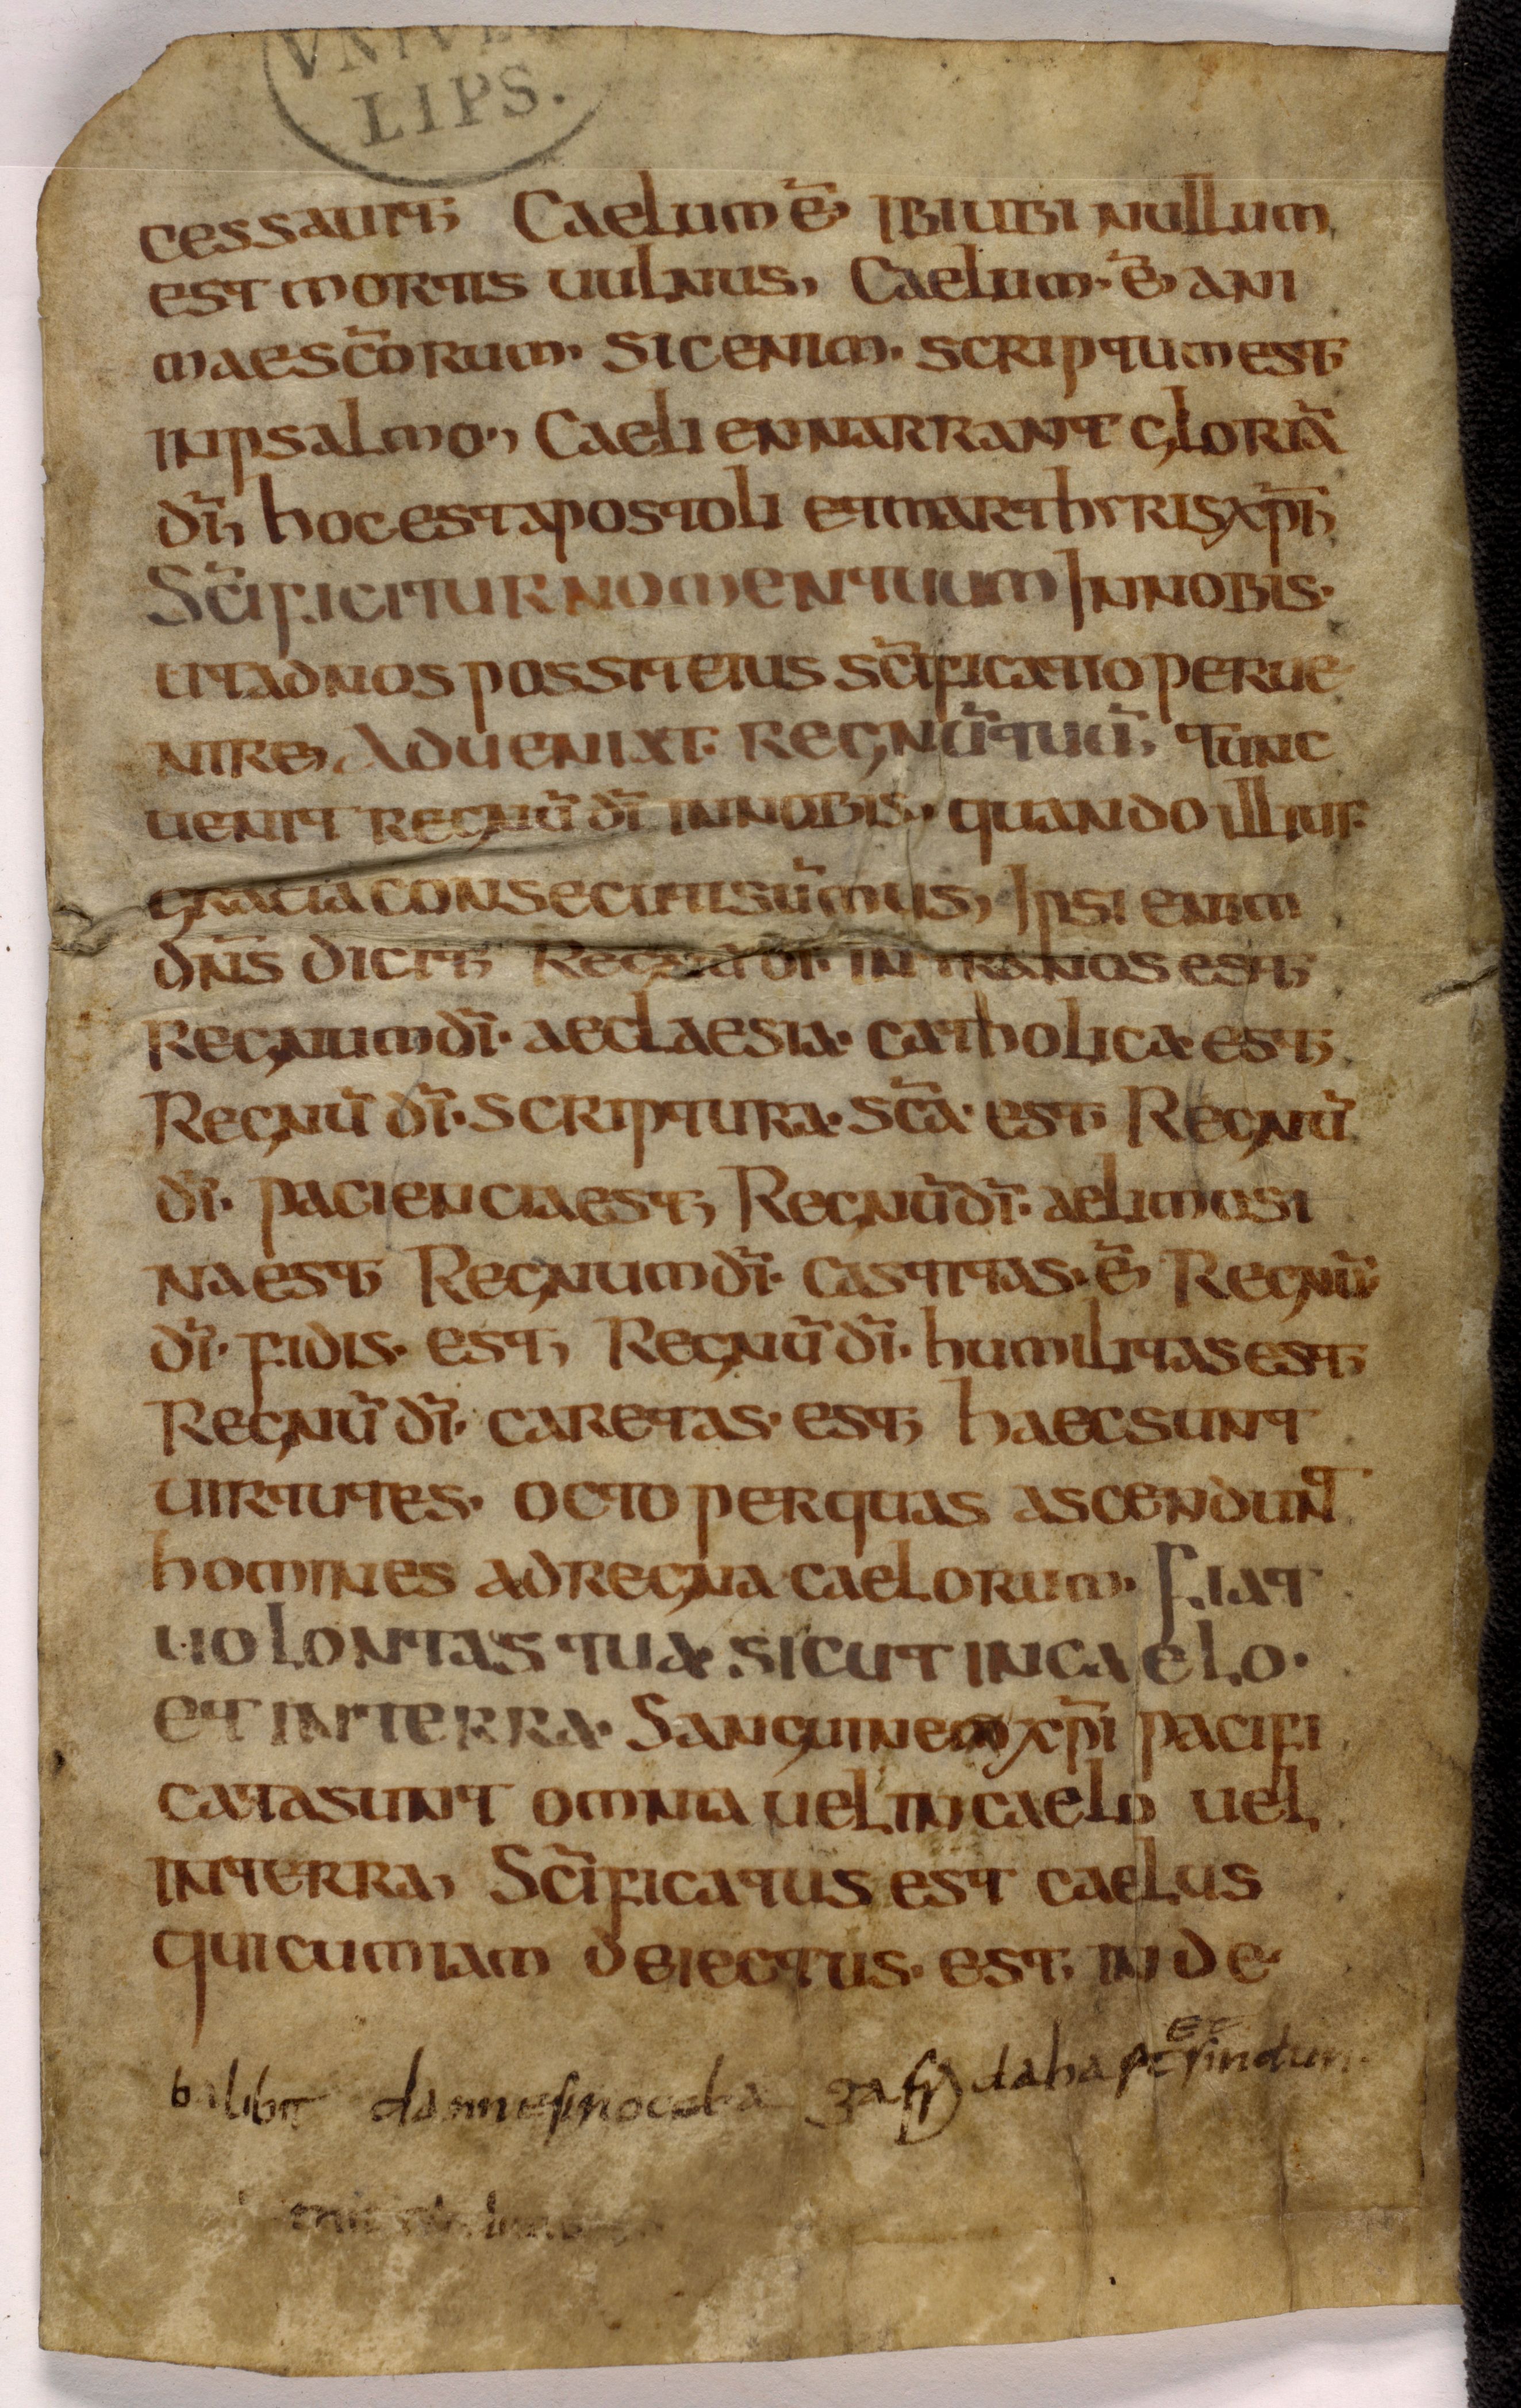 VNIVE
LIPS.
cessauit, Caelum ē, ibi ubi nullum
est mortis uulnus, Caelum· ē, ani
mae sc̄orum· sic enim· scriptum est,
in psalmo·, Caeli ennarrant gloriā
dī, hoc est apostoli et marthyris xp̄i,
Sc̄ificitur nomen tuum In nobis·
ut ad nos possit eius sc̄ificatio perue
nire, Adueniat· regnū tuū, tunc
uenit regnū dī in nobis· quando illius
gracia consecuti sūmus, Ipsi enim
dn̄s dicit, Regnū dī· intra nos est,
Regnum dī· aeclaesia· catholica· est,
Regnū dī· scriptura· sc̄a· est· Regnū
dī· paciencia est, Regnū dī· aelimosi
na est, Regnum dī· castitas· ē, Regnū
dī· fidis· est, Regnū dī· humilitas est,
Regnū dī· caretas· est, haec sunt
uirtutes· octo per quas ascendunt
homines ad regna caelorum· Fiat
uolontas tua· sicut in caelo·
et in terra· Sanguinem xp̄i pacifi
cata sunt omnia uel in caelo uel
in terra, Sc̄ificatus est caelus
qui cum iam deiectus· est, inde·